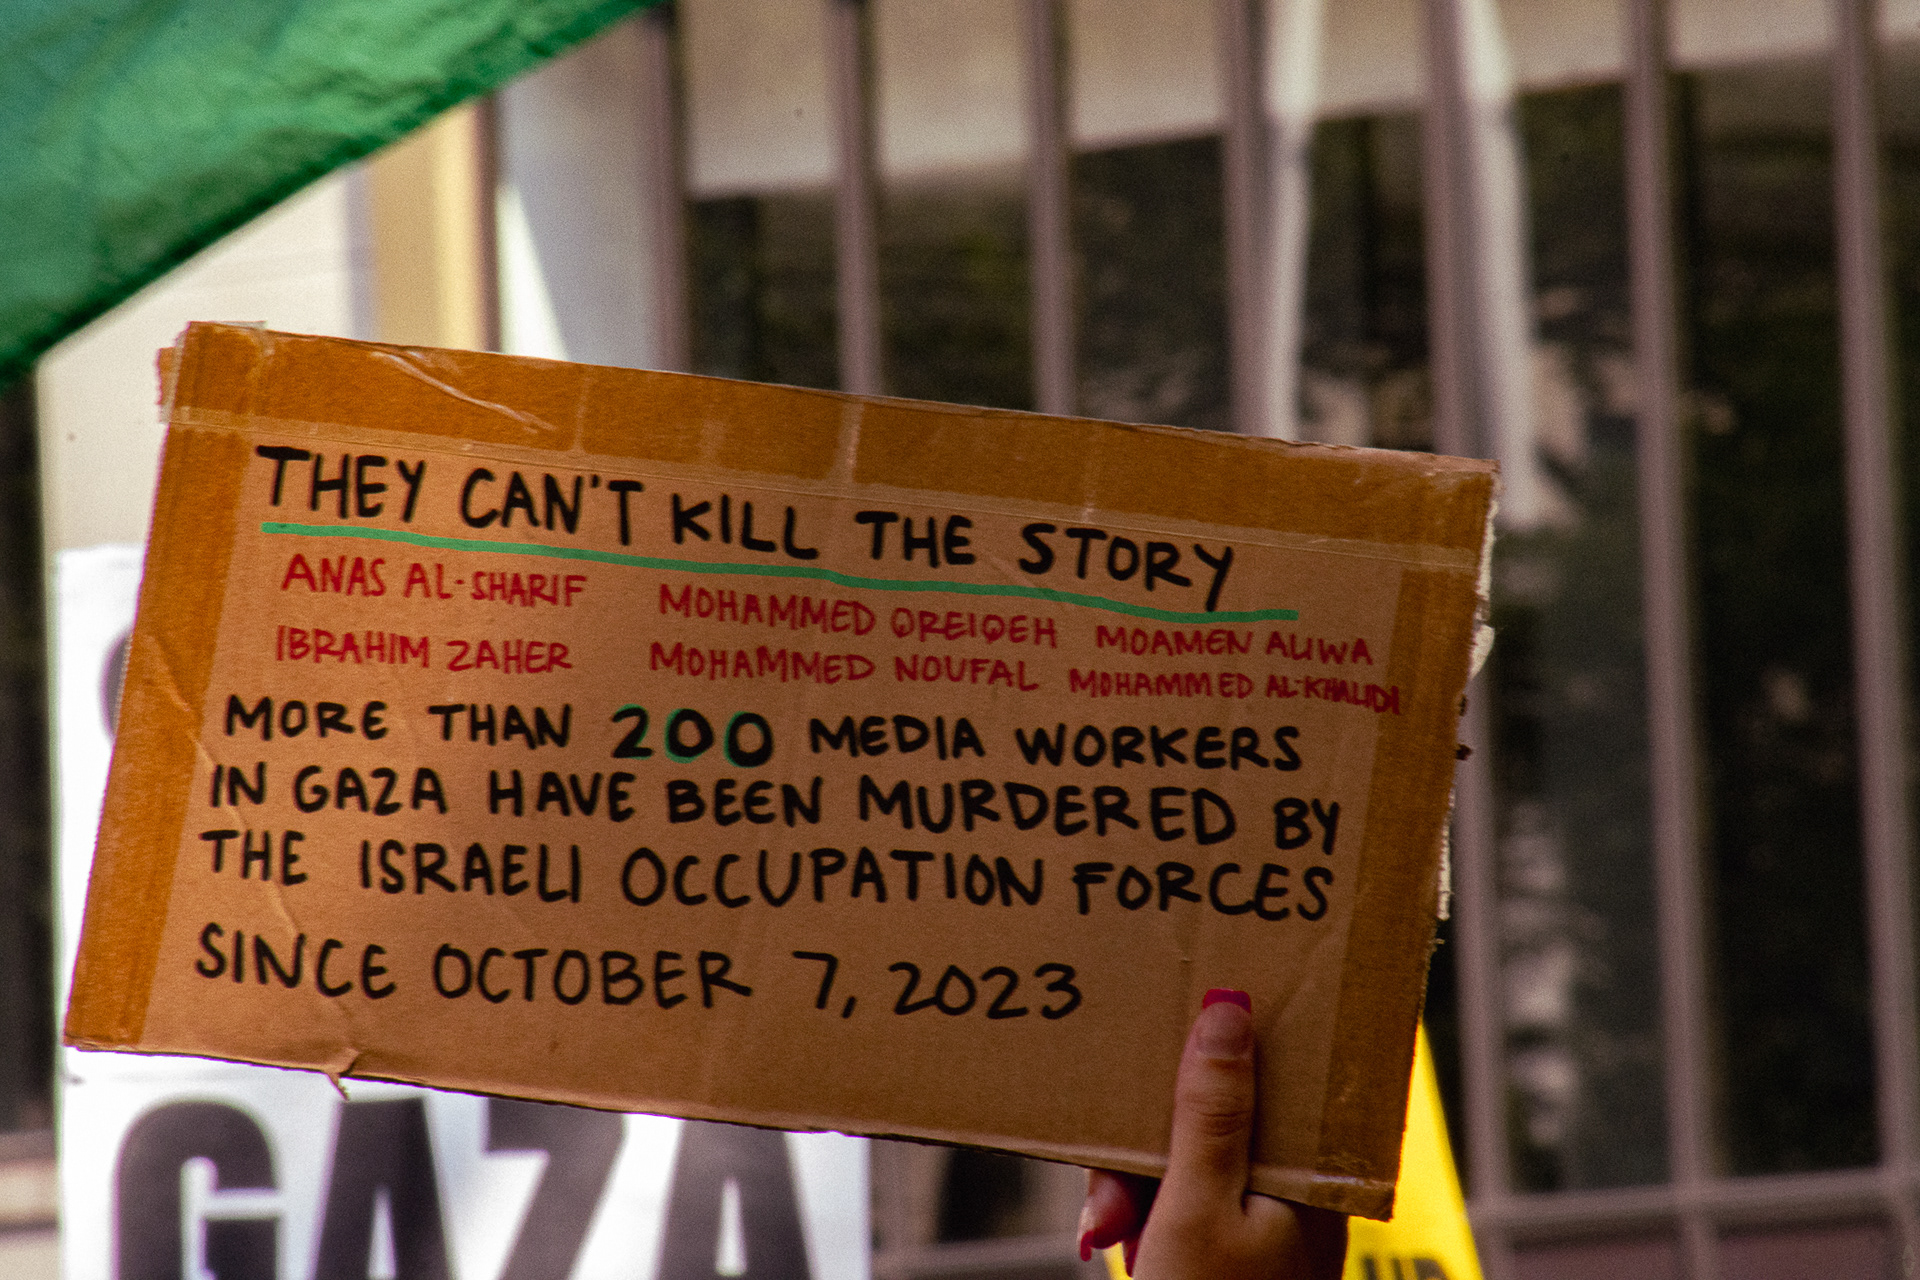 THEY CAN'T KILL THE STORY
ANAS AL-SHARIF MOHAMMED QREIQEH MOAMEN ALIWA
IBRAHIM ZAHER MOHAMMED NOUFAL MOHAMMED AL-KHALIDI
MORE THAN 200 MEDIA WORKERS
IN GAZA HAVE BEEN MURDERED BY
THE ISRAELI OCCUPATION FORCES
SINCE OCTOBER 7, 2023
GAZA